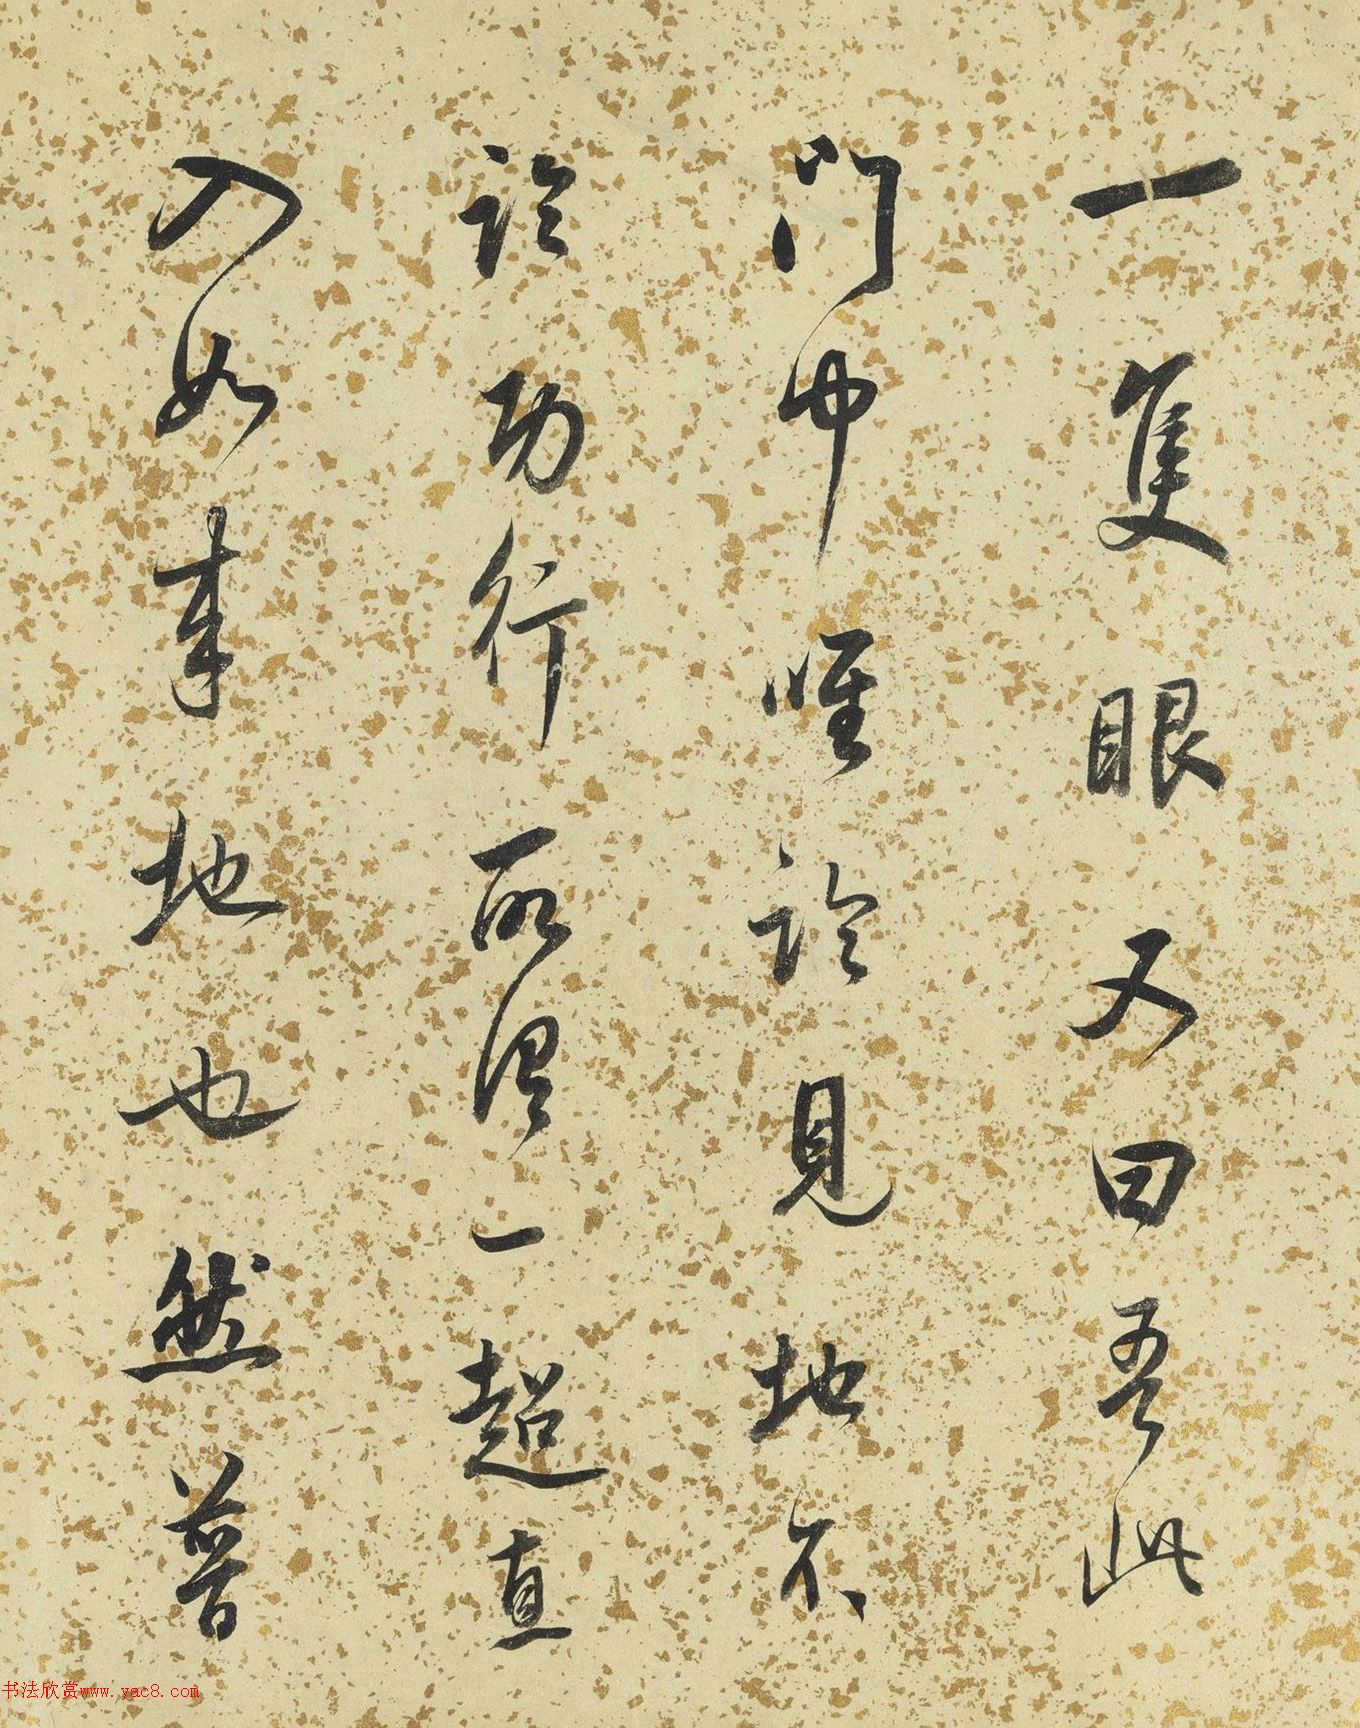 一隻眼又曰吾此
門中唯論見地不
論功行所謂一超直
入如來地也然普
书法欣赏www.yac8.com